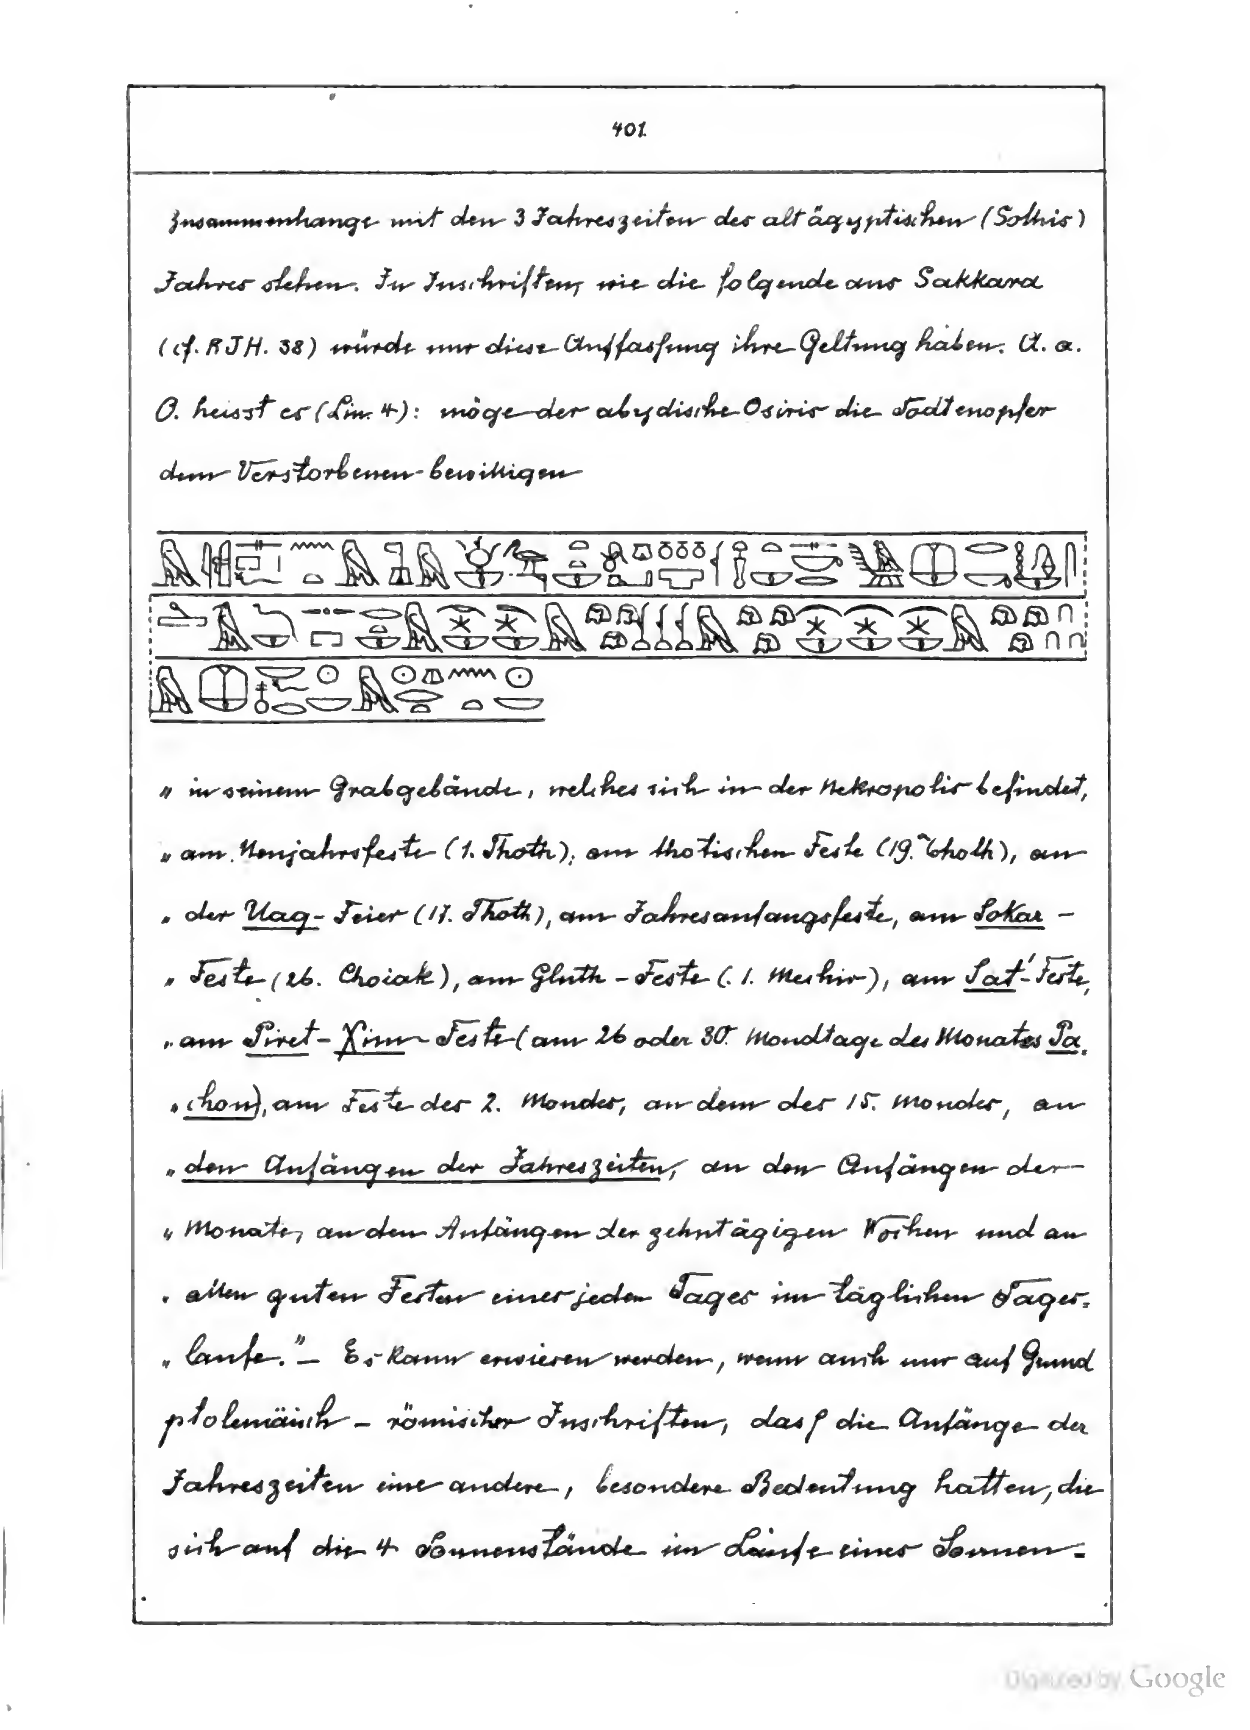 401.
Zusammenhange mit den 3 Jahreszeiten des altägyptischen (Sothis)
Jahres stehen. In Inschriften, wie die folgende aus Sakkara
(cf. RJH. 38) würde nur diese Auffassung ihre Geltung haben. A. a.
O. heisst es (Lin. 4): möge der abydische Osiris die Todtenopfer
dem Verstorbenen bewilligen
„ in seinem Grabgebäude, welches sich in der Nekropolis befindet,
„ am Neujahrsfeste (1. Thoth), am thotischen Feste (19. Thoth), an
„ der Uag-Feier (17. Thoth), am Jahresanfangsfeste, am Sokar-
„ Feste (26. Choiak), am Gluth-Feste (1. Mechir), am Sat'-Feste,
„ am Piret-Xim-Feste (am 26 oder 30. Mondtage des Monates Pa-
„ chon), am Feste des 2. Mondes, an dem des 15. Mondes, an
„ den Anfängen der Jahreszeiten, an den Anfängen der
„ Monate, an den Anfängen der zehntägigen Wochen und an
„ allen guten Festen eines jeden Tages im täglichen Tages-
„ laufe.“ – Es kann erwiesen werden, wenn auch nur auf Grund
ptolemäisch-römischer Inschriften, dass die Anfänge der
Jahreszeiten eine andere, besondere Bedeutung hatten, die
sich auf die 4 Sonnenstände im Laufe eines Sonnen-
Digitized by Google